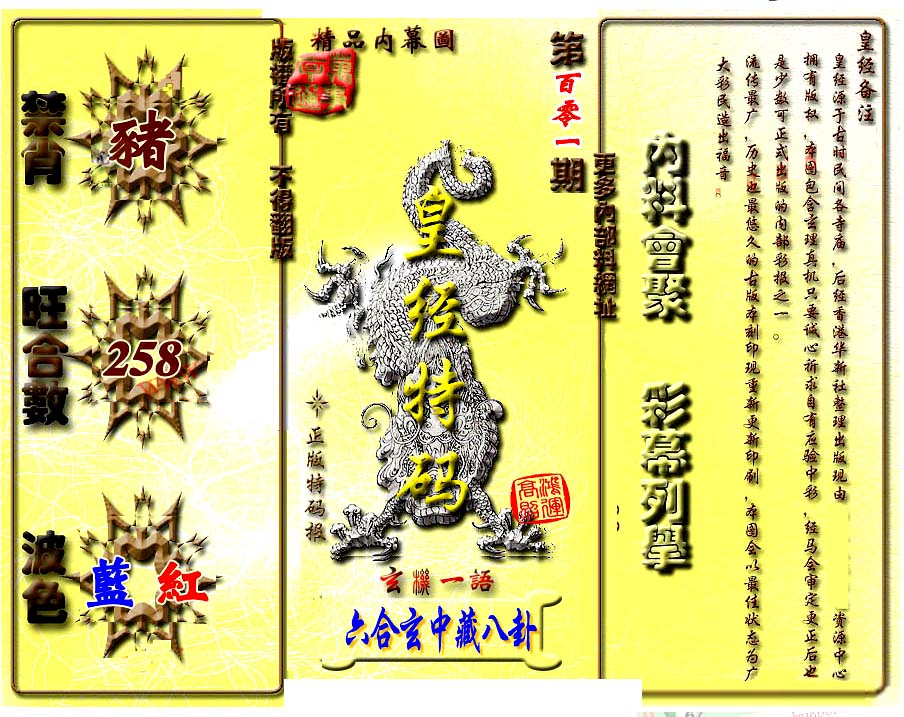 皇经备注
皇经源于古时民间各寺庙，后经香港华新社整理出版现由 资源中心
拥有版权，本图包含玄理真机只要诚心祈求自有应验中彩，经马会审定更正后也
是少数可正式出版的内部彩报之一。
流传最广，历史也最悠久的古版本刻印现重新更新印刷，本图会以最佳状态为广
大彩民造出福音
內料會聚 彩幕列舉
更多內部料網址
第百零一期
精品内幕圖
皇经特码
鴻運高照
正版特码报
玄機一語
六合玄中藏八卦
版權所有 不得翻版
禁肖
豬
旺合數
258
波色
藍 紅